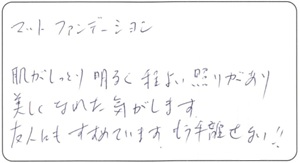 マット ファンデーション
肌がしっとり 明るく 程よい 照りがあり
美しく なれた 気がします
友人にも すすめています。もう手離せない!!